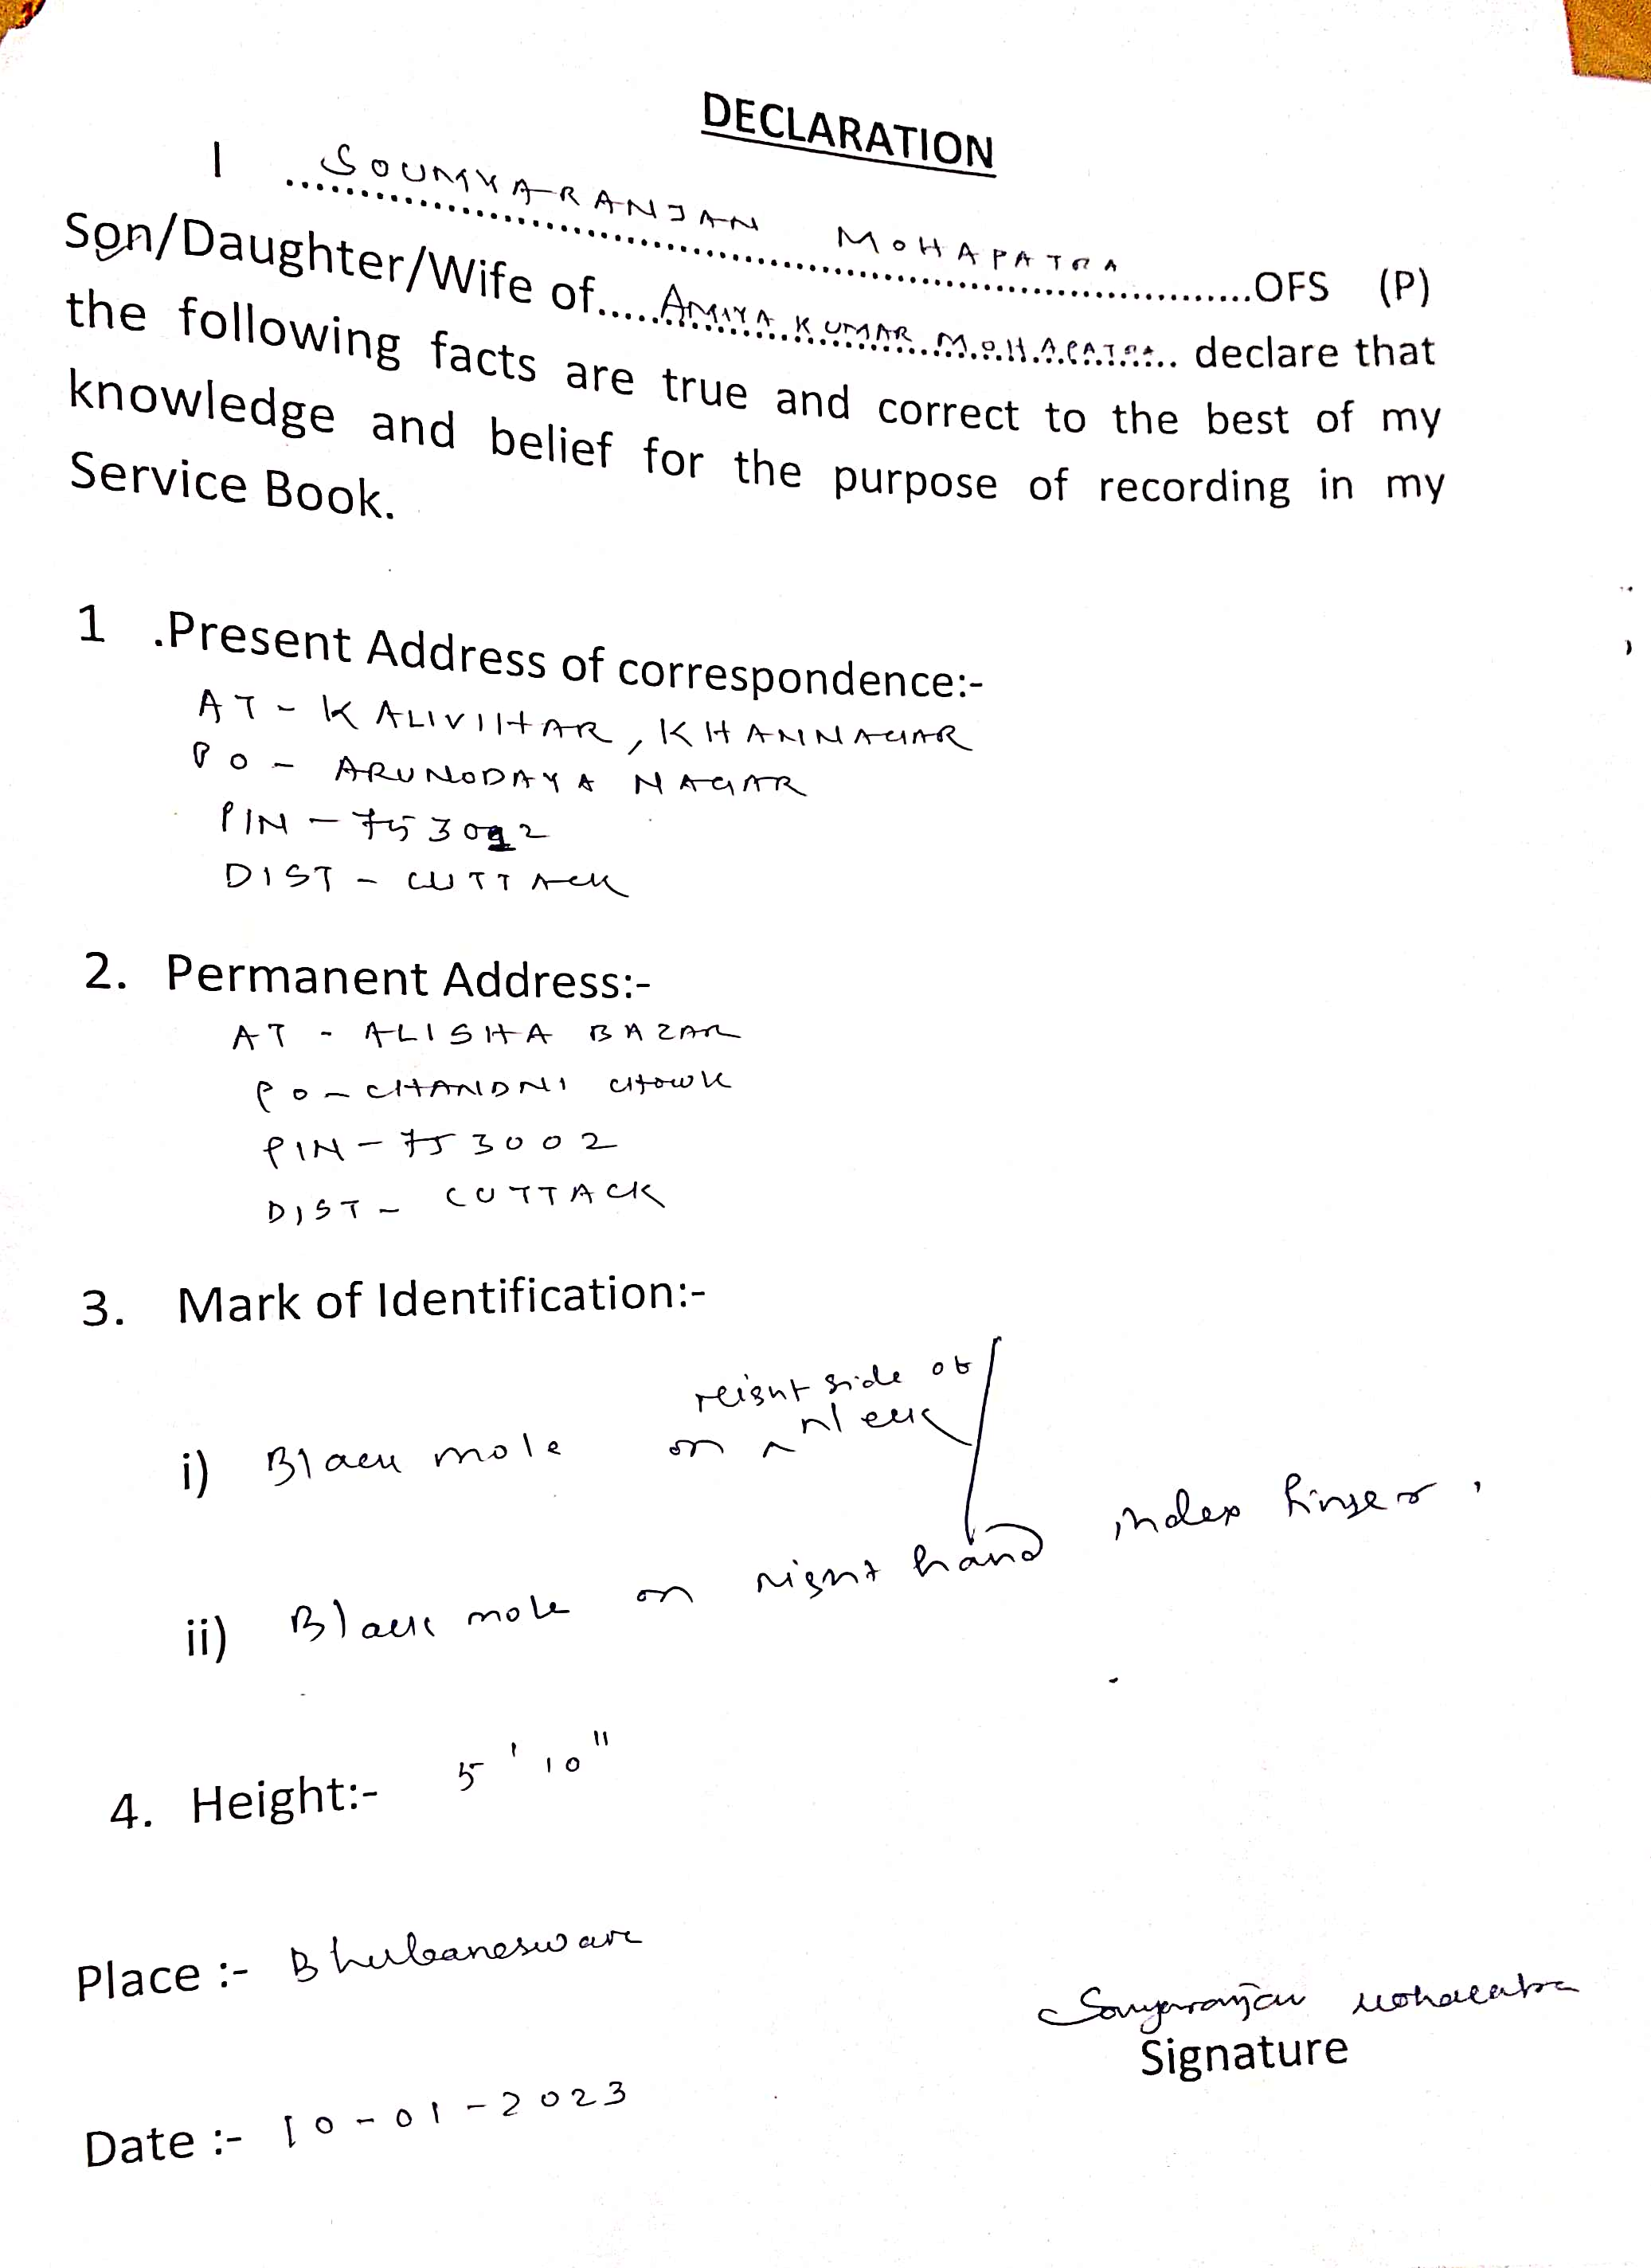 DECLARATION
I ...SOUMYARANJAN MOHAPATRA...OFS (P)
Son/Daughter/Wife of.....AMIYA KUMAR MOHAPATRA.. declare that
the following facts are true and correct to the best of my
knowledge and belief for the purpose of recording in my
Service Book.
1 .Present Address of correspondence:-
AT - KALIVIHAR, KHANNAGAR
PO - ARUNODAYA NAGAR
PIN - 753012
DIST - CUTTACK
2. Permanent Address:-
AT - ALISHA BAZAR
PO - CHANDNI CHOWK
PIN - 753002
DIST - CUTTACK
3. Mark of Identification:-
right side of
i) Black mole on ^ neck
ii) Black mole on right hand index finger.
4. Height:- 5'10"
Place :- Bhubaneswar
Soumyaranjan Mohapatra
Signature
Date :- 10-01-2023